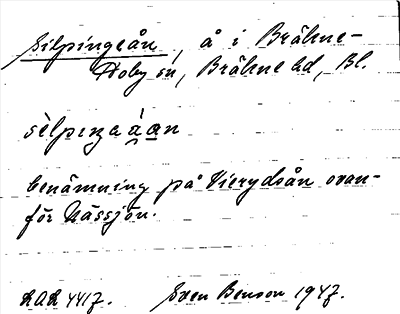 Silpingeån, å i Bräkne-
Hoby sn, Bräkne hd, Bl.
sèlpıŋaáan
benämning på Vierydsån ovan-
för Nässjön.
LAL 4417. Sven Benson 1947.